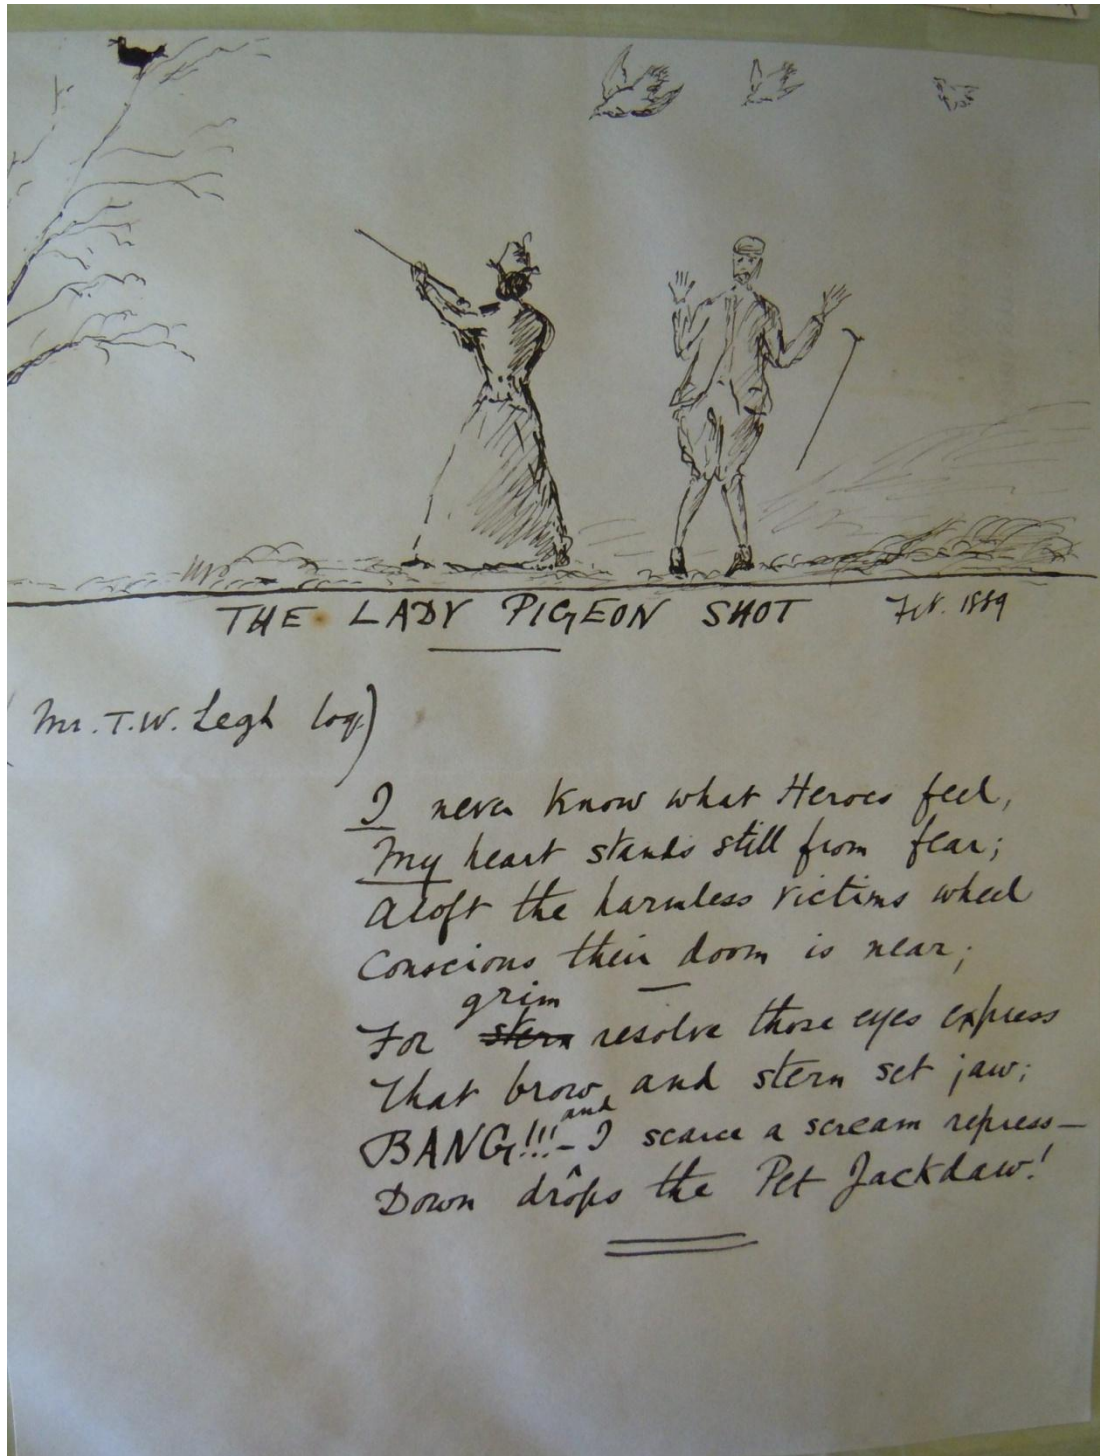 THE LADY PIGEON SHOT Feb. 1889
(Mr. T.W. Legh loq)
I never know what Heroes feel,
My heart stands still from fear;
Aloft the harmless victims wheel
Conscious their doom is near;
grim
For stern resolve those eyes express
That brow, and stern set jaw;
and
BANG!!! – I scarce a scream repress –
Down drops the Pet Jackdaw!